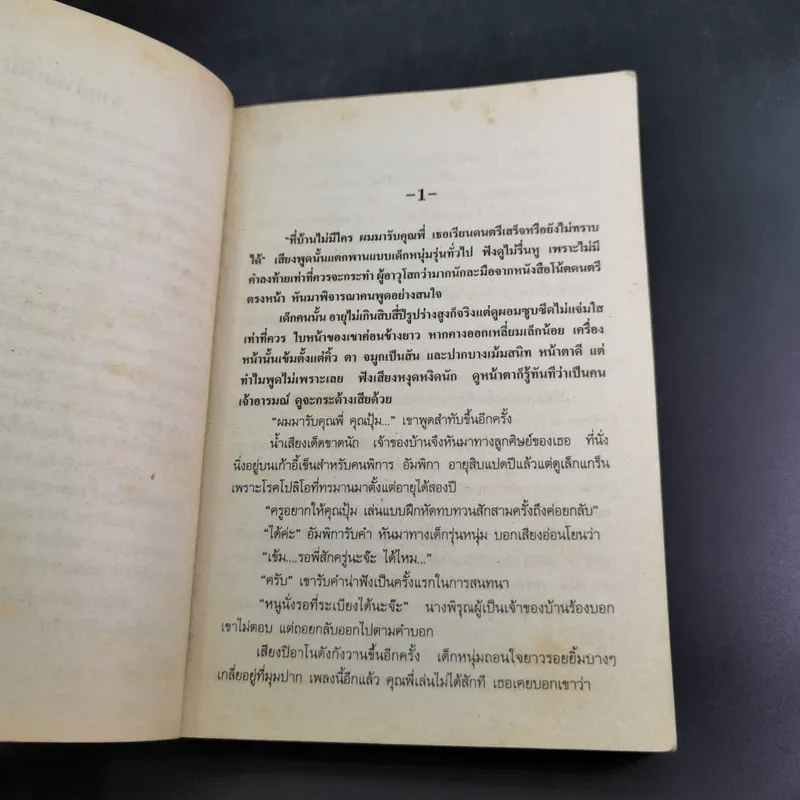 -1-
"ที่บ้านไม่มีใคร ผมมารับคุณพี่ เธอเรียนดนตรีเสร็จหรือยังไม่ทราบ
ได้" เสียงพูดนั้นแตกพานแบบเด็กหนุ่มรุ่นทั่วไป ฟังดูไม่รื่นหู เพราะไม่มี
คำลงท้ายเท่าที่ควรจะกระทำ ผู้อาวุโสกว่ามากนักละมือจากหนังสือโน้ตดนตรี
ตรงหน้า หันมาพิจารณาคนพูดอย่างสนใจ
เด็กคนนั้น อายุไม่เกินสิบสี่ปีรูปร่างสูงก็จริงแต่ดูผอมซูบซีดไม่แจ่มใส
เท่าที่ควร ใบหน้าของเขาค่อนข้างยาว หากคางออกเหลี่ยมเล็กน้อย เครื่อง
หน้านั้นเข้มตั้งแต่คิ้ว ตา จมูกเป็นสัน และปากบางเม้มสนิท หน้าตาดี แต่
ทำไมพูดไม่เพราะเลย ฟังเสียงหงุดหงิดนัก ดูหน้าตาก็รู้ทันทีว่าเป็นคน
เจ้าอารมณ์ ดูจะกระด้างเสียด้วย
"ผมมารับคุณพี่ คุณปุ้ม..." เขาพูดสำทับขึ้นอีกครั้ง
น้ำเสียงเด็ดขาดนัก เจ้าของบ้านจึงหันมาทางลูกศิษย์ของเธอ ที่นั่ง
นิ่งอยู่บนเก้าอี้เข็นสำหรับคนพิการ อัมพิกา อายุสิบแปดปีแล้วแต่ดูเล็กแกร็น
เพราะโรคโปลิโอที่ทรมานมาตั้งแต่อายุได้สองปี
"ครูอยากให้คุณปุ้ม เล่นแบบฝึกหัดทบทวนสักสามครั้งถึงค่อยกลับ"
"ได้ค่ะ" อัมพิการับคำ หันมาทางเด็กรุ่นหนุ่ม บอกเสียงอ่อนโยนว่า
"เข้ม....รอพี่สักครู่นะจ๊ะ ได้ไหม..."
"ครับ" เขารับคำน่าฟังเป็นครั้งแรกในการสนทนา
"หนูนั่งรอที่ระเบียงได้นะจ๊ะ" นางพิรุณผู้เป็นเจ้าของบ้านร้องบอก
เขาไม่ตอบ แต่ถอยกลับออกไปตามคำบอก
เสียงปิอาโนดังกังวานขึ้นอีกครั้ง เด็กหนุ่มถอนใจยาวรอยยิ้มบางๆ
เกลี่ยอยู่ที่มุมปาก เพลงนี้อีกแล้ว คุณพี่เล่นไม่ได้สักที เธอเคยบอกเขาว่า